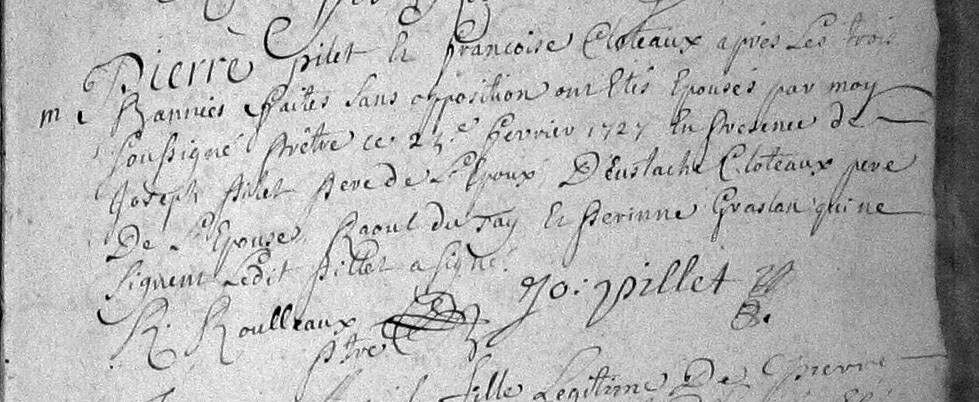 Pierre pilet Et francoise Cloteaux apres Les trois
m Bannies faites Sans opposition ont Etés Epousés par moy
Soussigné Prêtre ce 23e fevrier 1727 En Presence de
Joseph pilet Pere de L'Epoux, D'Eustache Cloteaux pere
De L'Epouse, Raoul du Fay Et perinne Graslan qui ne
Signent Ledit pillet a signé.
Jo: pillet
R. Roulleaux
ptre
fille Legitime De pierre